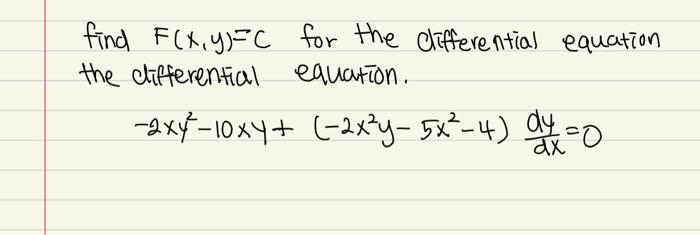 find F(x,y)=C for the differential equation
the differential equation.
-2xy²-10xy+ (-2x²y-5x²-4) dy/dx=0